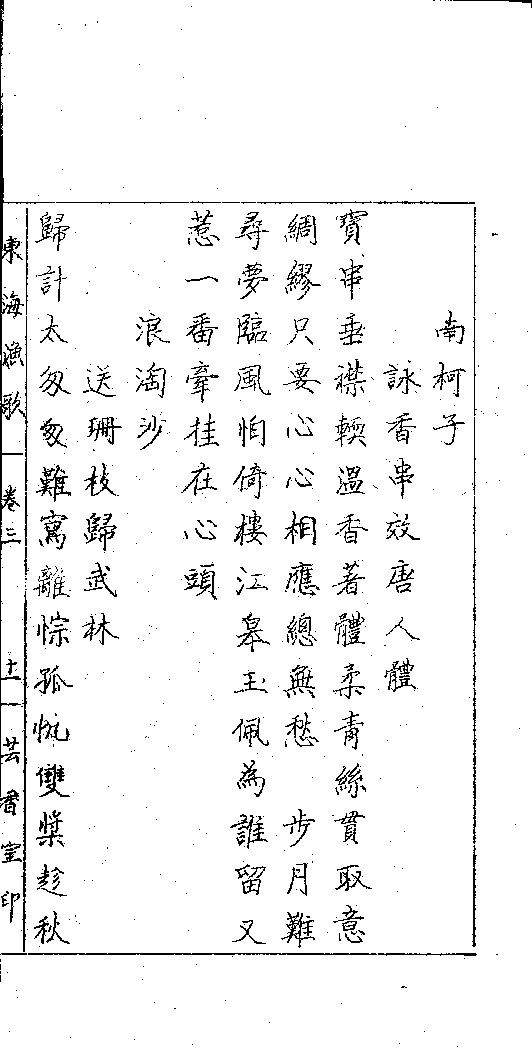 南柯子
詠香串效唐人體
寳串垂襟輭溫香著體柔青絲貫取意
綢繆只要心心相應總無愁 步月難
尋夢臨風怕倚樓江皋玉佩為誰留又
惹一番牽挂在心頭
浪淘沙
送珊枝歸武林
歸計太匆匆難寫離悰孤帆雙槳趁秋
東海漁歌 卷三 十一 芸香室印